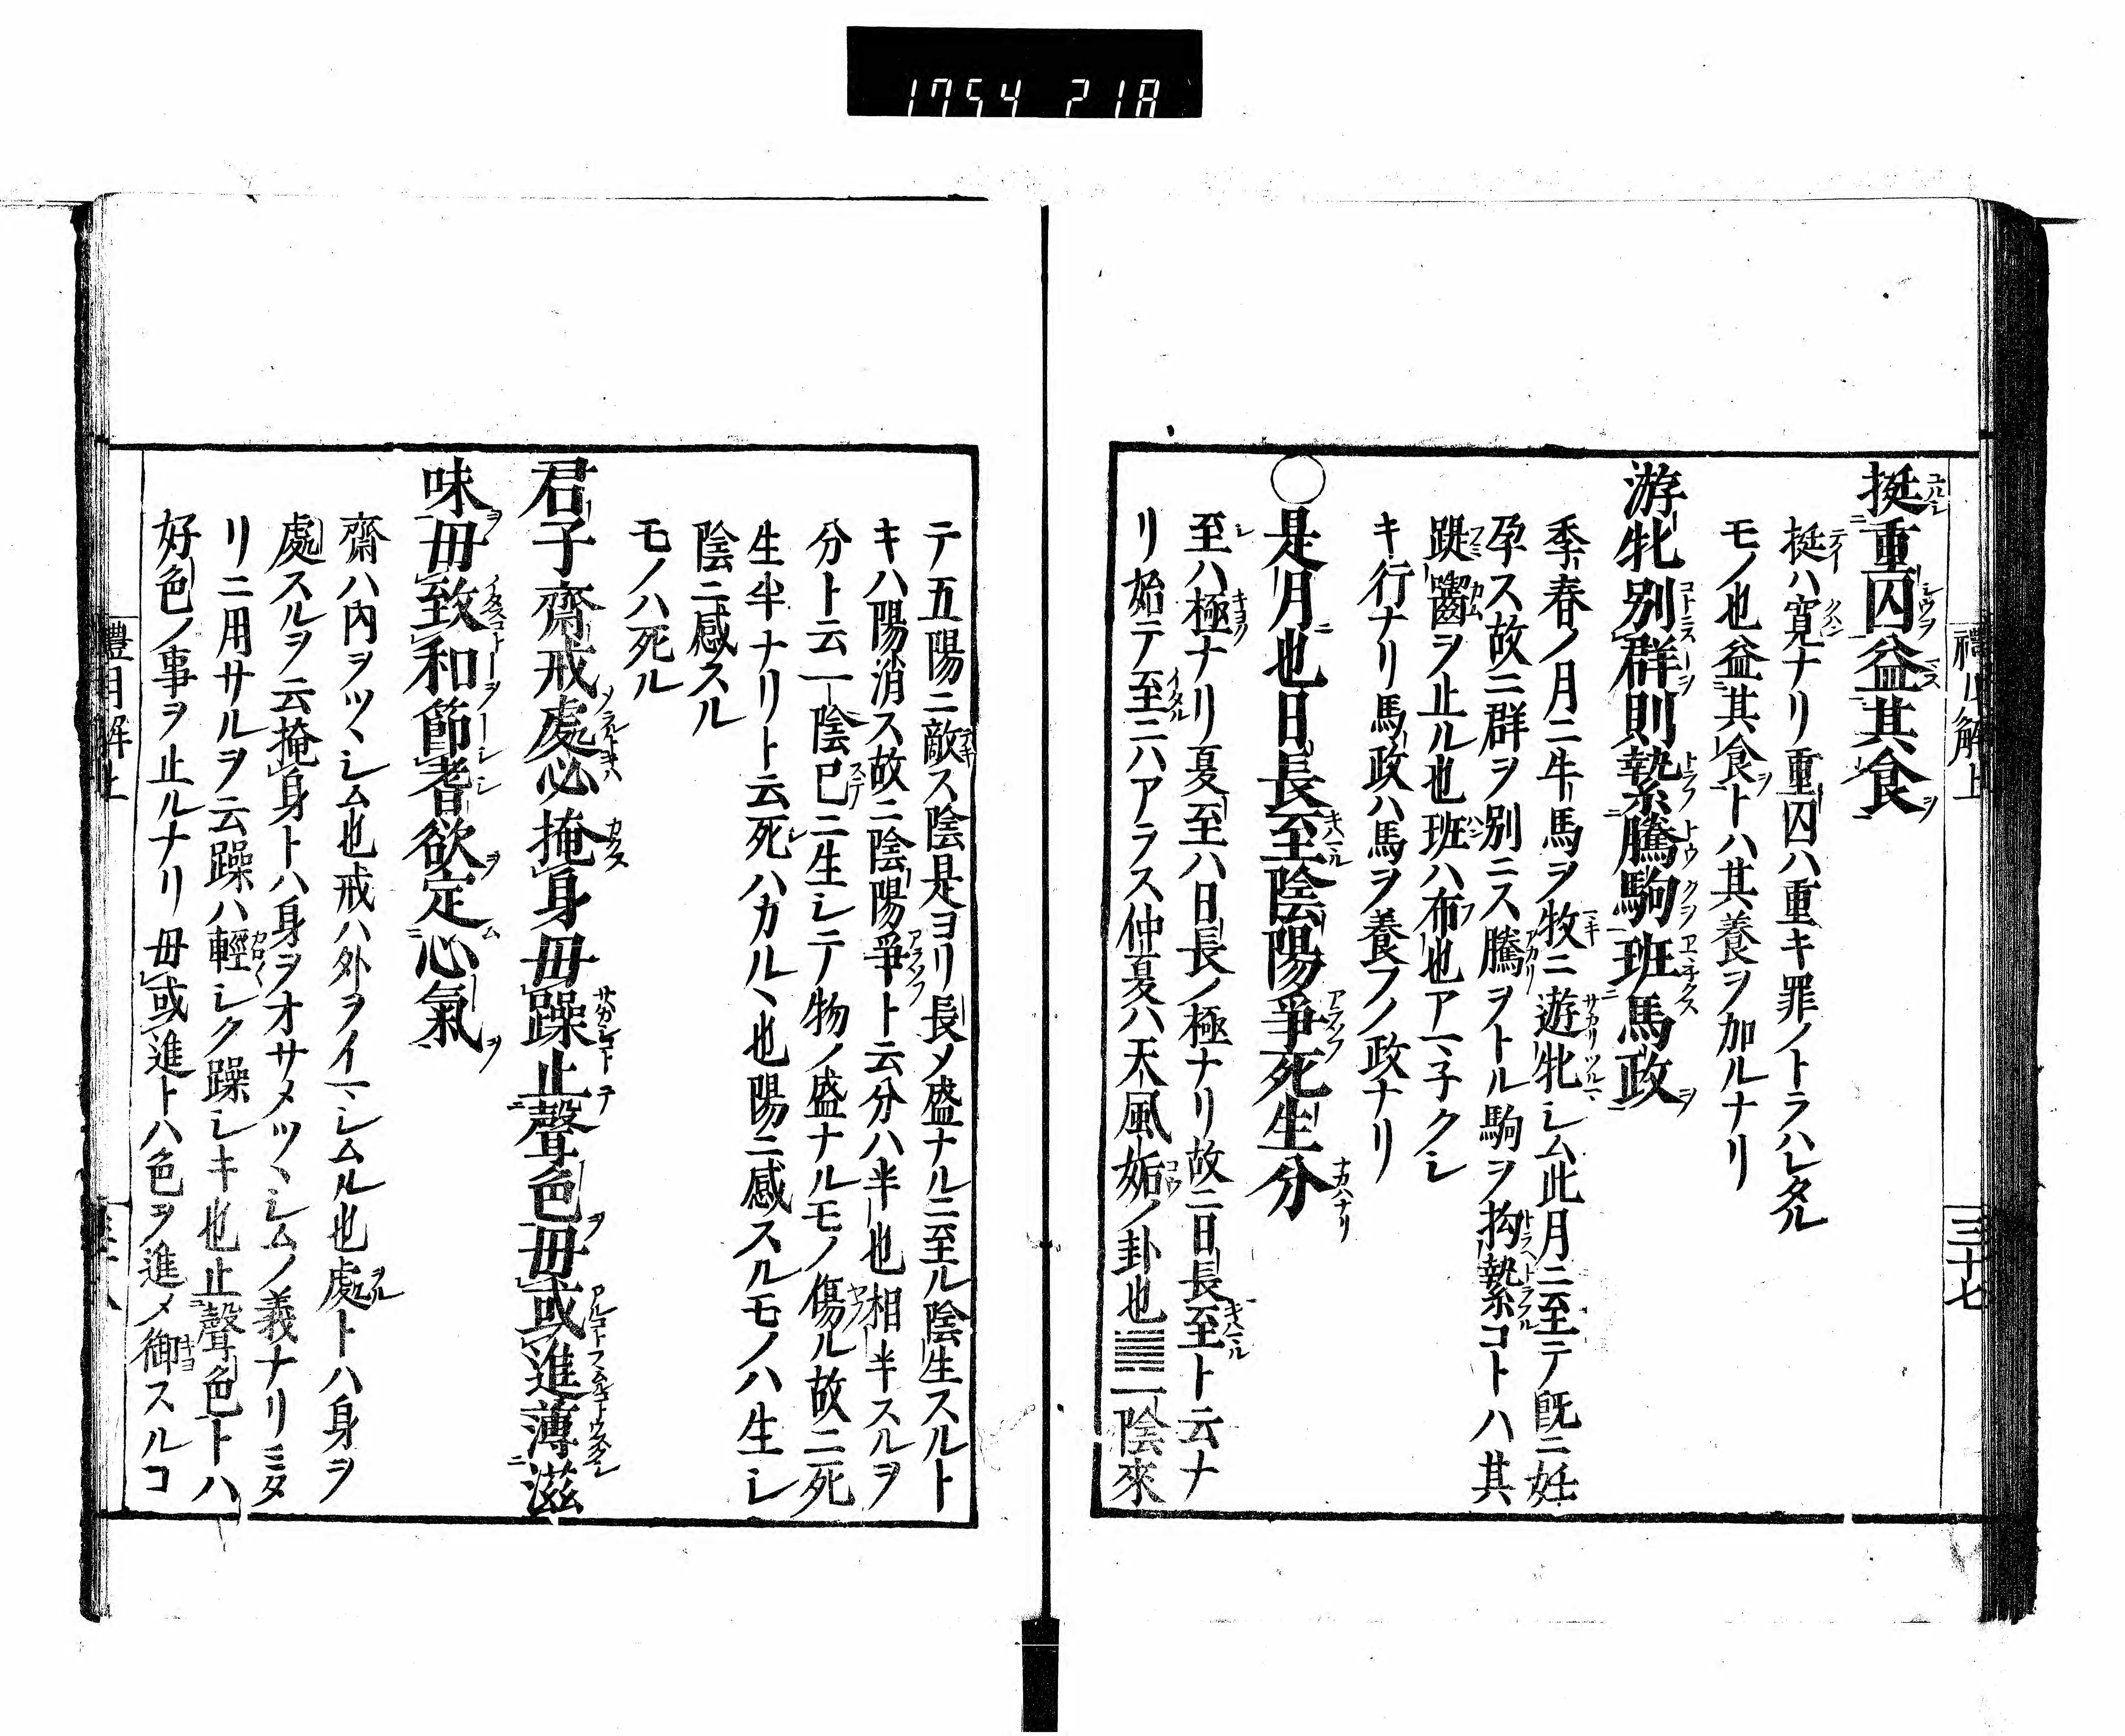 1754 218
挺重囚益其食
挺ハ寛ナリ重囚ハ重キ罪ノトラハレタル
モノ也益其食トハ其養ヲ加ルナリ
游牝別群則縶騰駒班馬政
季春ノ月ニ牛馬ヲ牧ニ遊牝シム此月ニ至テ既ニ妊
孕ス故ニ群ヲ別ニス騰ヲトル駒ヲ拘縶コトハ其
踶齧ヲ止ル也班ハ布也アマ子クシ
キ行ナリ馬政ハ馬ヲ養フノ政ナリ
○是月也日長至陰陽爭死生分
至ハ極ナリ夏至ハ日長ノ極ナリ故ニ日長至ト云ナ
リ始テ至ニハアラス仲夏ハ天風姤ノ卦也一陰來
三十七
テ五陽ニ敵ス陰是ヨリ長メ盛ナルニ至ル陰生スルト
キハ陽消ス故ニ陰陽爭ト云分ハ半也相半スルヲ
分ト云一陰已ニ生シテ物ノ盛ナルモノ傷ル故ニ死
生半ナリト云死ハカルヽ也陽ニ感スルモノハ生シ
陰ニ感スル
モノハ死ル
君子齋戒處必掩身毋躁止聲色毋或進薄滋
味毋致和節耆欲定心氣
齋ハ內ヲツヽシム也戒ハ外ヲイマシムル也處トハ身ヲ
處スルヲ云掩身トハ身ヲオサメツヽシムノ義ナリミタ
リニ用サルヲ云躁ハ輕シク躁シキ也止聲色トハ
好色ノ事ヲ止ルナリ毋或進トハ色ヲ進メ御スルコ